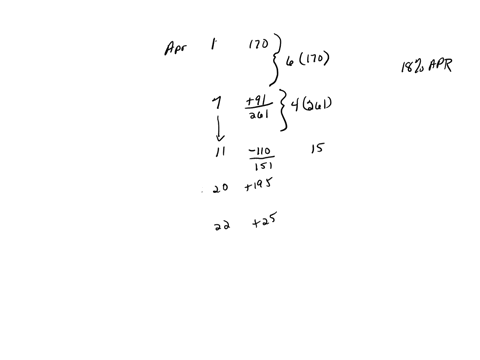 Apr 1 170 } 6 (170)
18% APR
7 +91 } 4 (261)
261
11 -110 15
151
20 +195
22 +25